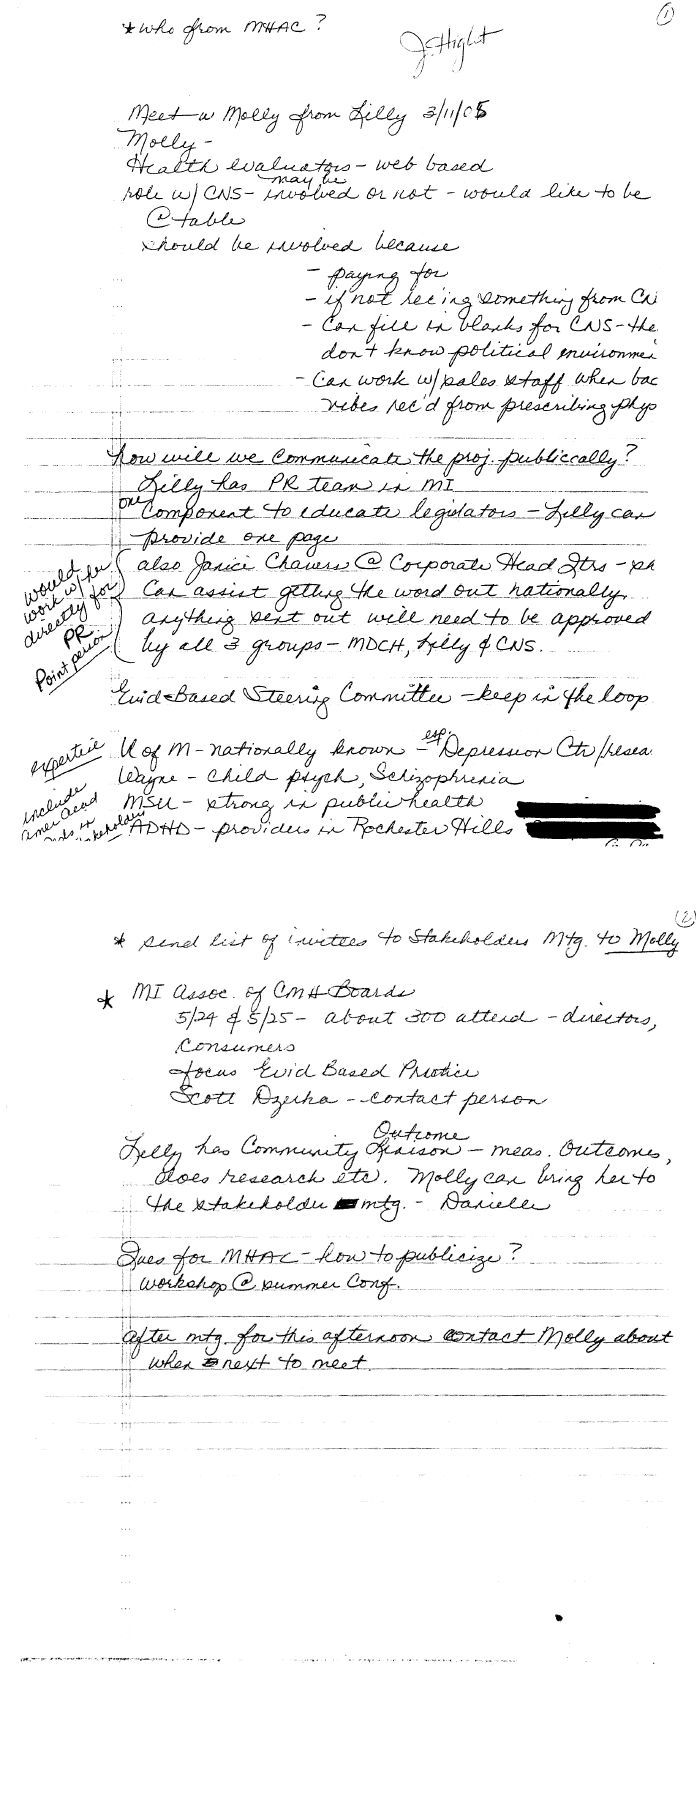 1
* who from MHAC ?
J. Hight
Meet w Molly from Lilly 3/11/05
Molly -
Health evaluators - web based
may be
role w/ CNS - involved or not - would like to be
@ table
should be involved because
- paying for
- if not rec'ing something from CN
- Can fill in blanks for CNS - the
don't know political environme
- Can work w/ sales staff when bac
vibes rec'd from prescribing phys
how will we communicate the proj. publiccally?
Lilly has PR team in MI
one
component to educate legislators - Lilly can
provide one page
also Janice Chavers @ Corporate Head Qtrs - ph
Can assist getting the word out nationally,
anything sent out will need to be approved
by all 3 groups - MDCH, Lilly & CNS.
would
work w/ her
directly for
PR
Point person
Evid-Based Steering Committee - keep in the loop
expertise
esp.
U of M - nationally known - Depression Ctr/resea
Wayne - child psych, Schizophrenia
MSU - strong in public health
ADHD - providers in Rochester Hills
include
Amer Acad
in
stakeholders
2
* send list of invitees to Stakeholders Mtg. to Molly
* MI Assoc. of CMH Boards
5/24 & 5/25 - about 300 attend - directors,
Consumers
focus Evid Based Practice
Scott Dzurka - contact person
Outcome
Lilly has Community Liaison - meas. Outcomes,
does research etc. Molly can bring her to
the stakeholder mtg. - Danielle
Ques for MHAC - how to publicize?
workshop @ summer Conf.
After mtg. for this afternoon contact Molly about
when next to meet